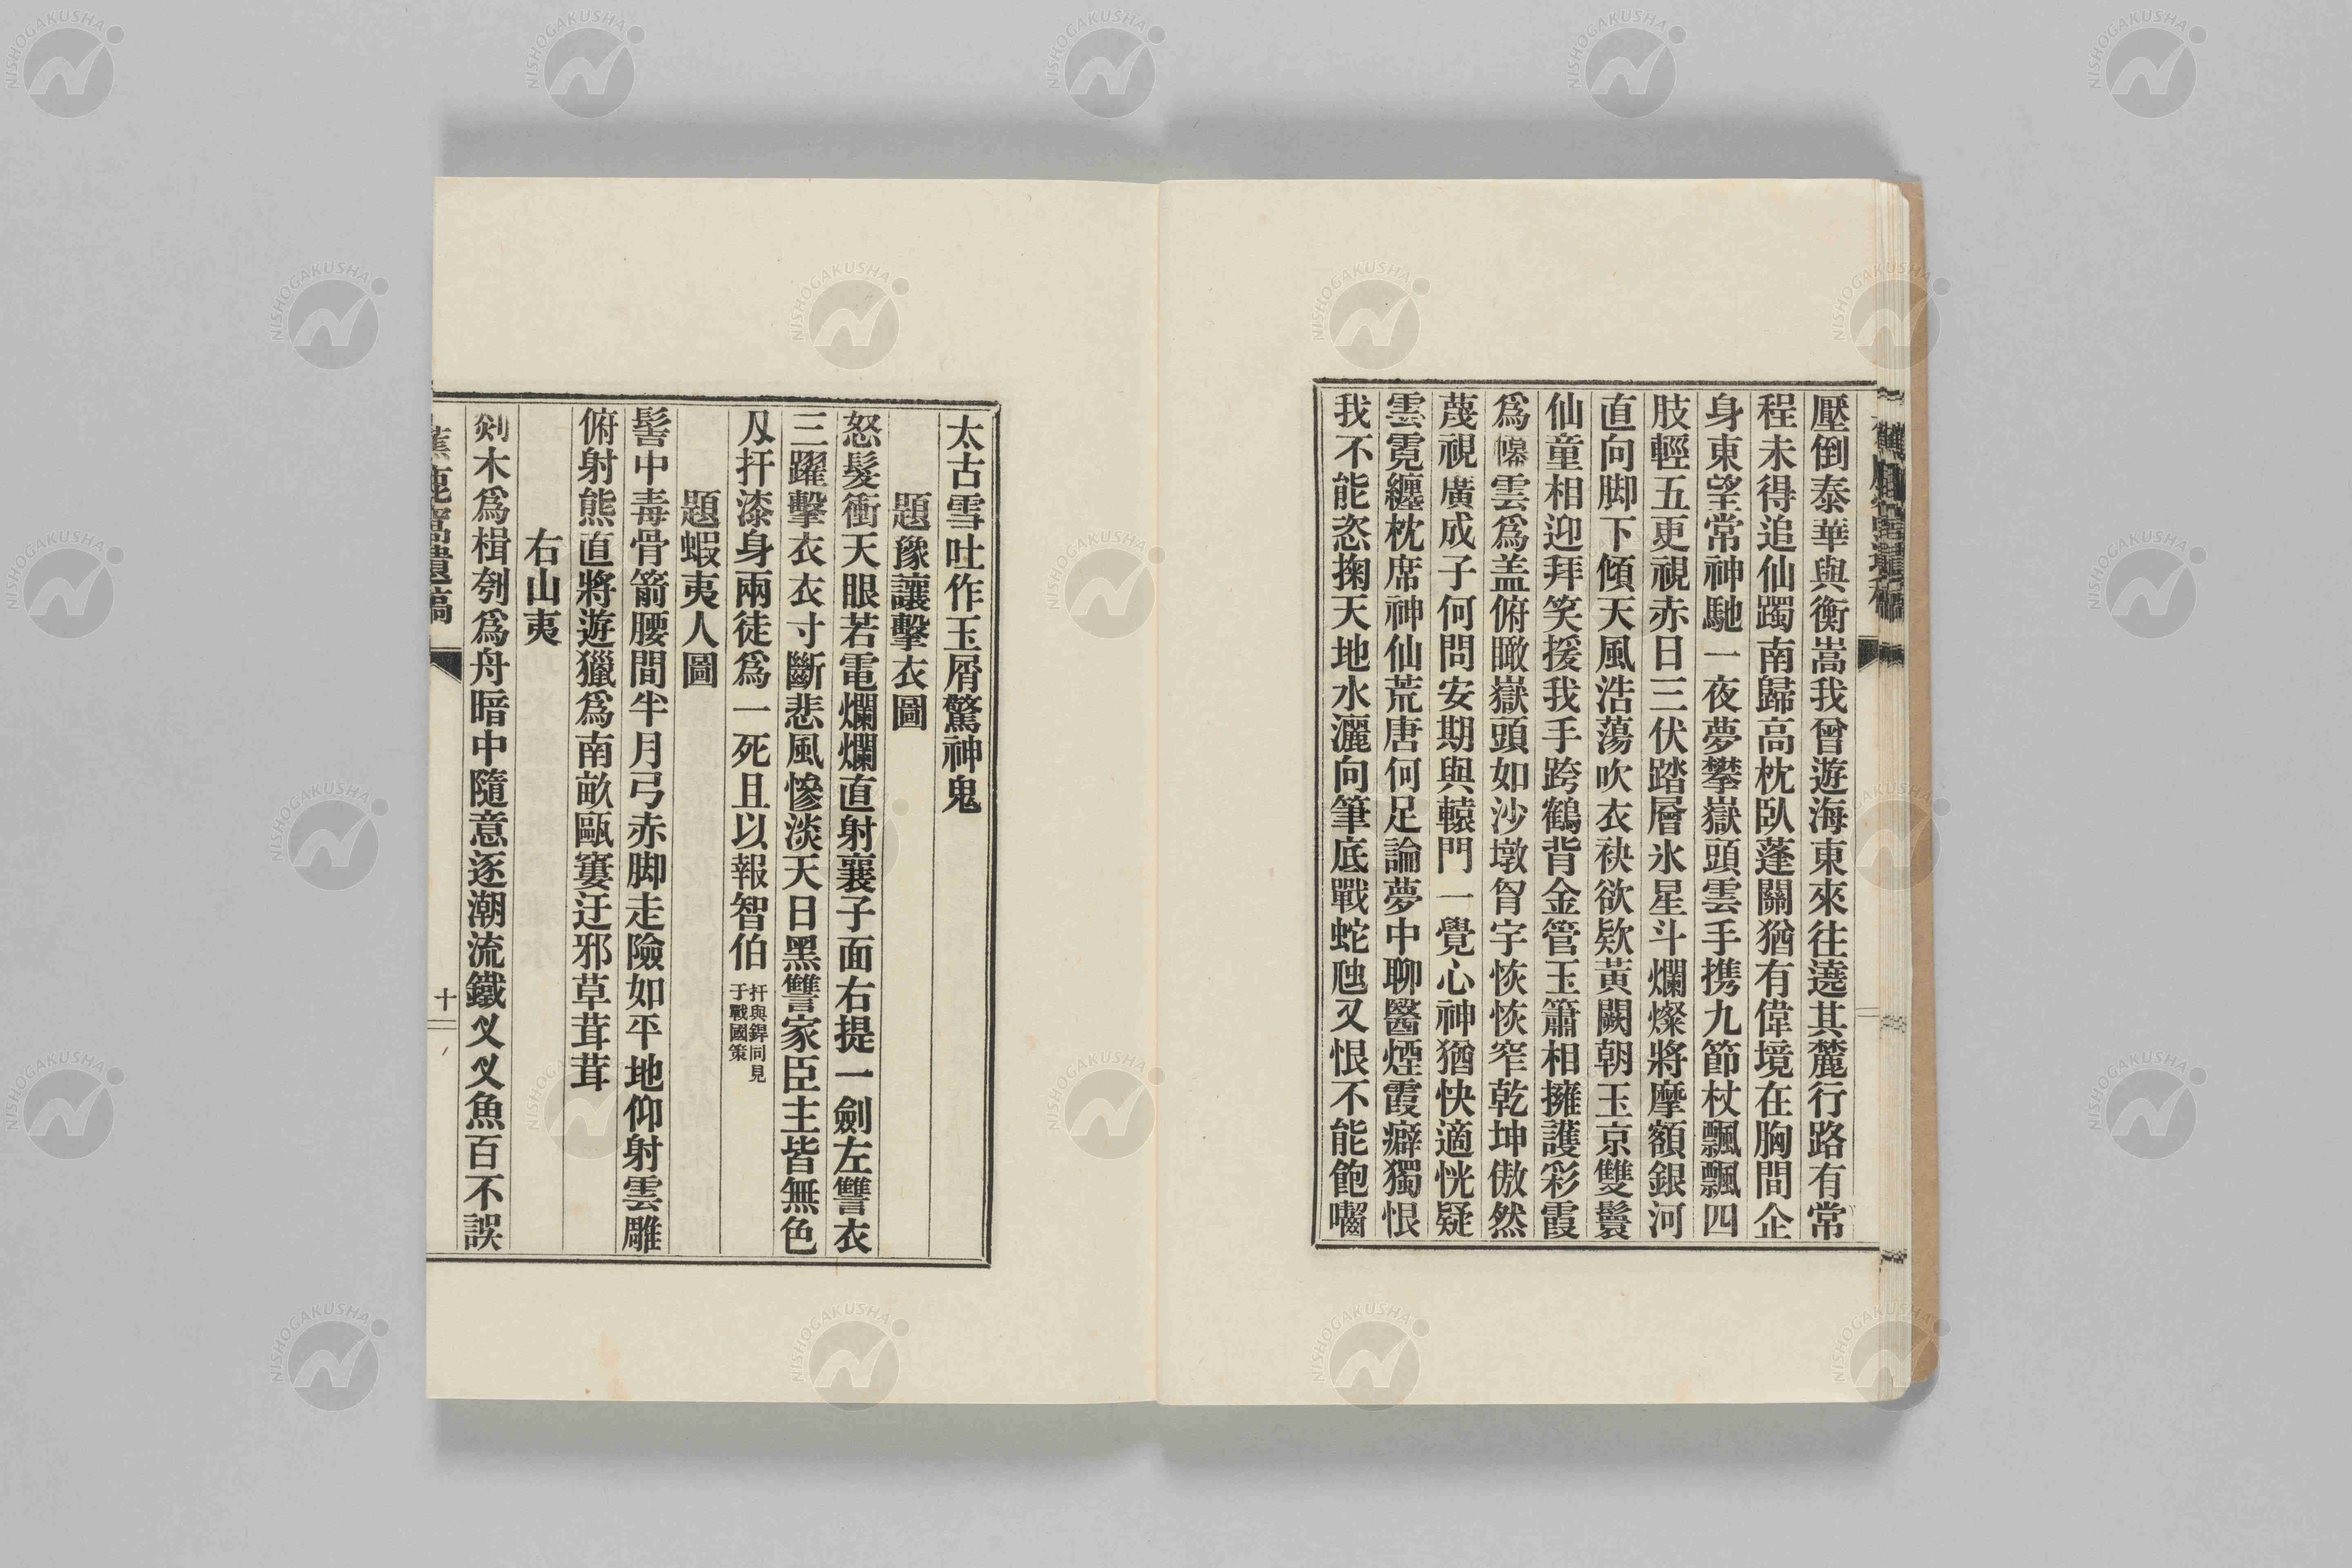 壓倒泰華與衡嵩我曾遊海東來往遶其麓行路有常
程未得追仙躅南歸高枕臥蓬關猶有偉境在胸間企
身東望常神馳一夜夢攀嶽頭雲手携九節杖飄飄四
肢輕五更視赤日三伏踏層氷星斗爛燦將摩額銀河
直向脚下傾天風浩蕩吹衣袂欲欵黃闕朝玉京雙鬟
仙童相迎拜笑援我手跨鶴背金管玉簫相擁護彩霞
爲幙雲爲盖俯瞰嶽頭如沙墩胷宇恢恢窄乾坤傲然
蔑視廣成子何問安期與轅門一覺心神猶快適恍疑
雲霓纏枕席神仙荒唐何足論夢中聊醫煙霞癖獨恨
我不能恣掬天地水灑向筆底戰蛇虺又恨不能飽囓
太古雪吐作玉屑驚神鬼
題豫讓擊衣圖
怒髮衝天眼若電爛爛直射襄子面右提一劍左讐衣
三躍擊衣衣寸斷悲風慘淡天日黑讐家臣主皆無色
及扞漆身兩徒爲一死且以報智伯
扞與銲同見
于戰國策
題蝦夷人圖
髻中毒骨箭腰間半月弓赤脚走險如平地仰射雲雕
俯射熊直將遊獵爲南畝甌窶迂邪草茸茸
右山夷
剡木爲楫刳爲舟暗中隨意逐潮流鐵叉叉魚百不誤
蕉鹿窩遺稿
十
NISHOGAKUSHA